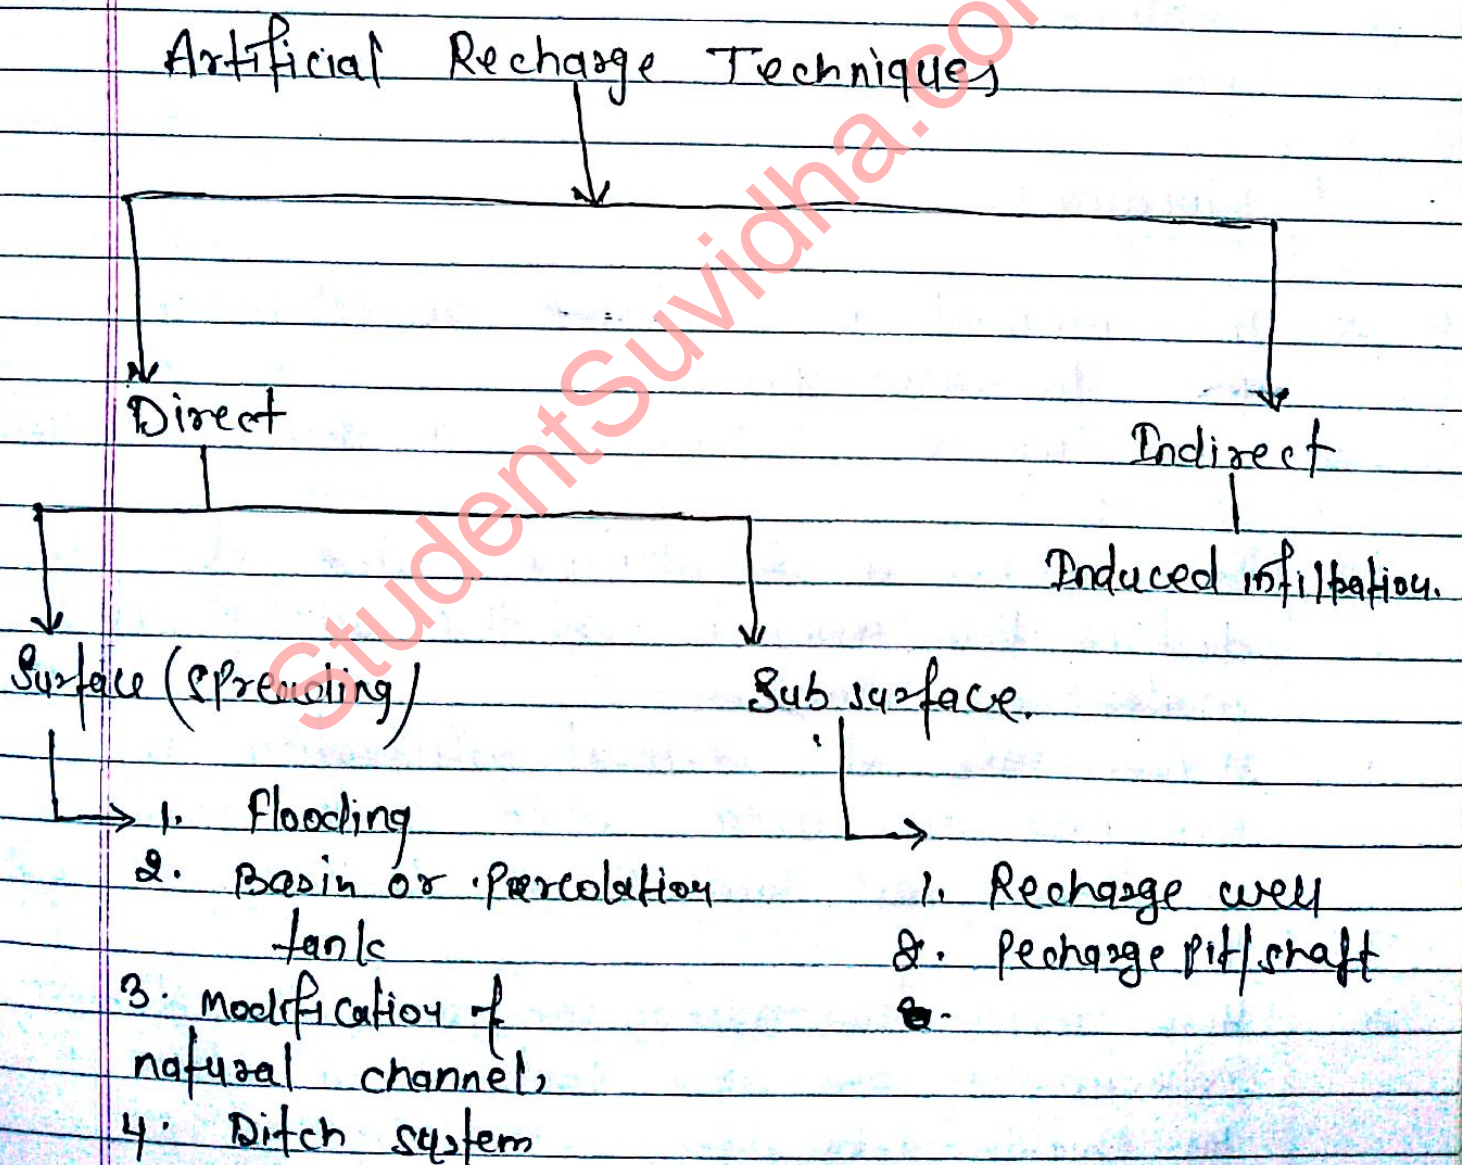 Artificial Recharge Techniques
Direct
Indirect
Induced infiltration.
Surface (Spreading)
Sub surface.
1. flooding
2. Basin or percolation
tank
3. Modification of
natural channels
4. Ditch system
1. Recharge well
2. Recharge pit/shaft
StudentSuvidha.com